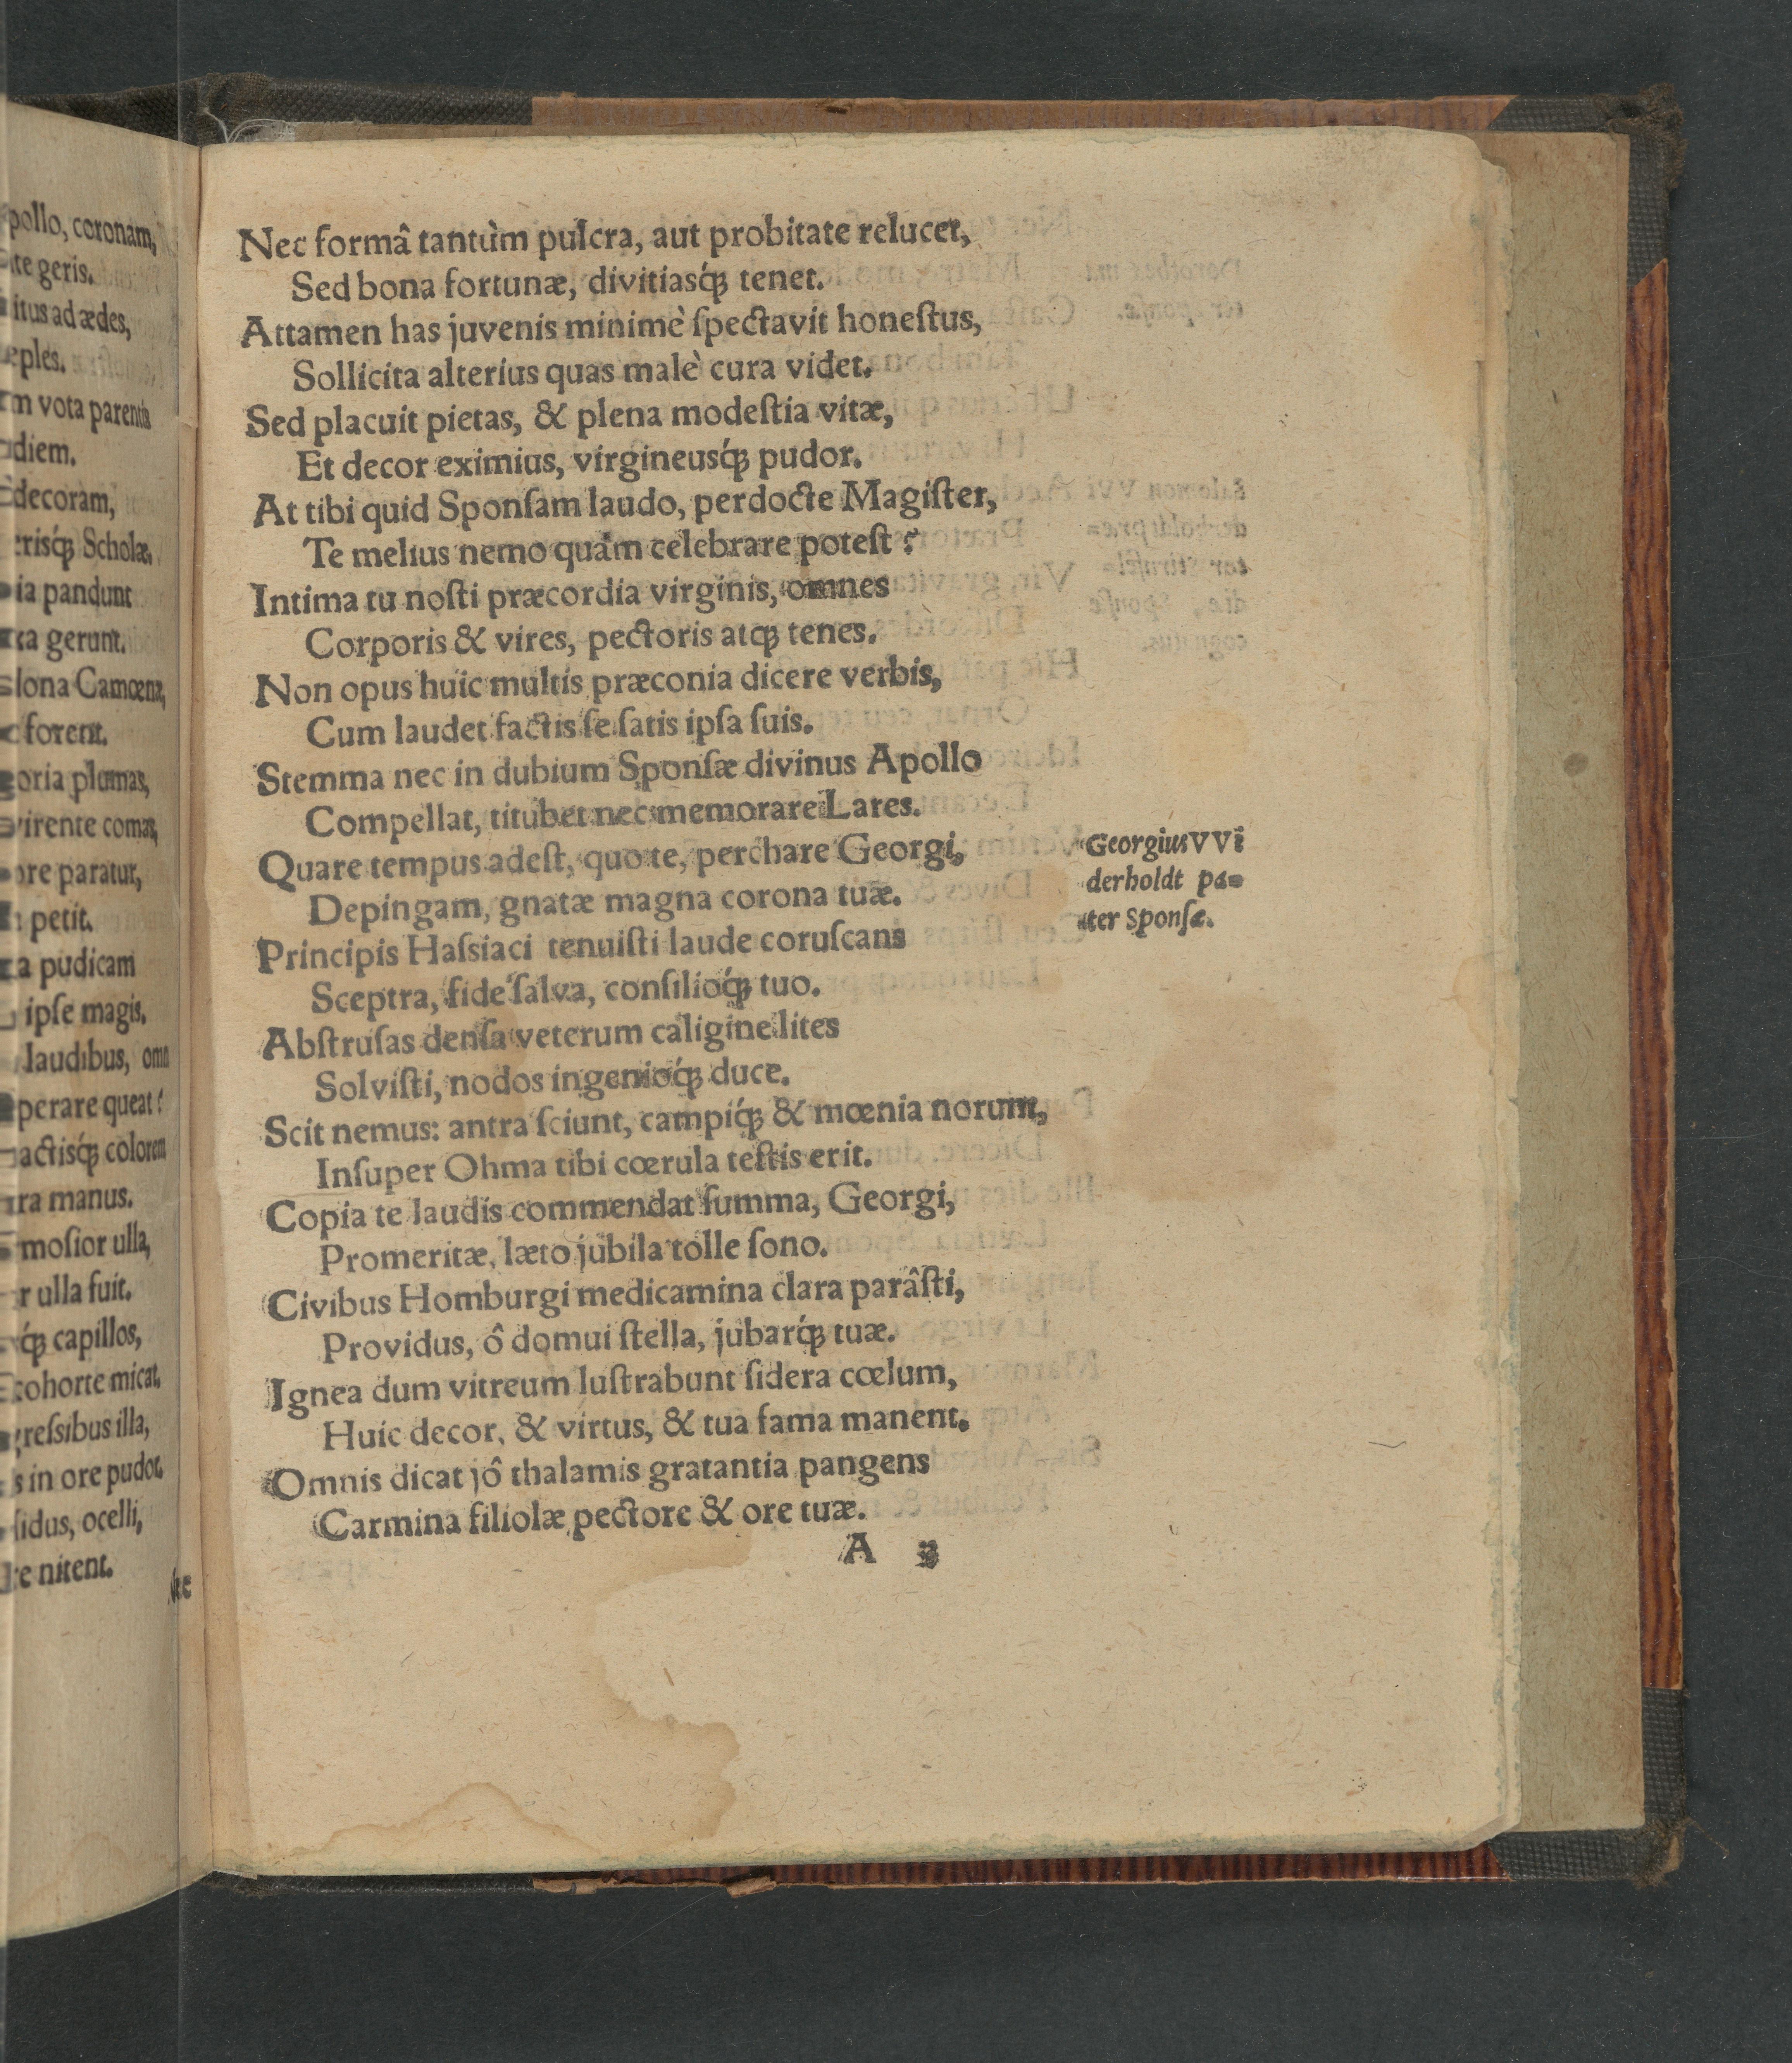 pollo, coronam,
te geris.
itus ad ædes,
ples.
m vota parentis
diem.
decoram,
risq́; Scholæ.
ia pandunt
ta gerunt.
lona Camœna,
forent.
oria plumas,
virente comas,
ore paratur,
petit.
a pudicam
ipſe magis.
laudibus, omn
perare queat?
actisq́; colorem
ra manus.
moſior ulla,
r ulla fuit.
q́; capillos,
cohorte micat.
greſsibus illa,
s in ore pudor.
ſidus, ocelli,
re nitent.
Nec
Nec formâ tantùm pulcra, aut probitate relucet,
Sed bona fortunæ, divitiasq́; tenet.
Attamen has juvenis minimè ſpectavit honeſtus,
Sollicita alterius quas malè cura videt.
Sed placuit pietas, & plena modeſtia vitæ,
Et decor eximius, virgineusq́; pudor.
At tibi quid Sponſam laudo, perdocte Magiſter,
Te melius nemo quàm celebrare poteſt?
Intima tu noſti præcordia virginis, omnes
Corporis & vires, pectoris atq; tenes.
Non opus huic multis præconia dicere verbis,
Cum laudet factis ſe ſatis ipſa ſuis.
Stemma nec in dubium Sponſæ divinus Apollo
Compellat, titubet nec memorare Lares.
Quare tempus adeſt, quo te, perchare Georgi,
Depingam, gnatæ magna corona tuæ.
Georgius VVi
derholdt pa-
ter Sponſæ.
Principis Haſsiaci tenuiſti laude coruſcans
Sceptra, fide ſalva, conſilioq́; tuo.
Abſtruſas denſa veterum caligine lites
Solviſti, nodos ingenioq́; duce.
Scit nemus: antra ſciunt, campiq́; & mœnia norunt,
Inſuper Ohma tibi cœrula teſtis erit.
Copia te laudis commendat ſumma, Georgi,
Promeritæ, læto jubila tolle ſono.
Civibus Homburgi medicamina clara parâſti,
Providus, ô domui ſtella, jubarq́; tuæ.
Ignea dum vitreum luſtrabunt ſidera cœlum,
Huic decor, & virtus, & tua fama manent.
Omnis dicat jô thalamis gratantia pangens
Carmina filiolæ pectore & ore tuæ.
A 3